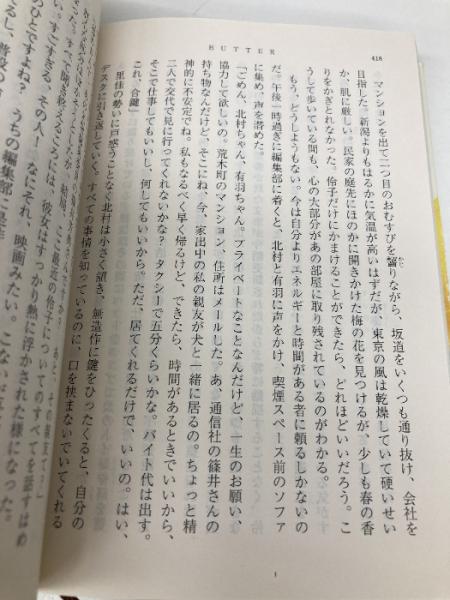 BUTTER
418
マンションを出て二つ目のおむすびを齧りながら、坂道をいくつも通り抜け、会社を
目指した。新潟よりもはるかに気温が高いはずだが、東京の風は乾燥していて硬いせい
か、肌に厳しい。民家の庭先にほのかに開きかけた梅の花を見つけるが、少しも春の香
りをかぎとれなかった。伶子だけにかまけることができたら、どれほどいいだろう。こ
うして歩いている間も、心の大部分があの部屋に取り残されているのがわかる。
もう、どうしようもない。今は自分よりエネルギーと時間がある者に頼るしかないの
だ。午後一時過ぎに編集部に着くと、北村と有羽に声をかけ、喫煙スペース前のソファ
に集め、声を潜めた。
「ごめん、北村ちゃん、有羽ちゃん。プライベートなことなんだけど、一生のお願い、
協力して欲しいの。荒木町のマンション、住所はメールした。あ、通信社の篠井さんの
持ち物なんだけど、そこにね、今、家出中の私の親友が犬と一緒に居るの。ちょっと精
神的に不安定でね。私もなるべく早く帰るけど、できたら、時間があるときでいいから、
二人で交代で見に行ってくれないかな? タクシーで五分くらいかな。バイト代は出す。
そこで仕事してもいいし、何してもいいから。ただ、居てくれるだけで、いいの。はい、
これ、合鍵」
里佳の勢いに戸惑うことなく北村は小さく頷き、無造作に鍵をひったくると、自分の
デスクに引き返していく。すべての事情を知っているのに、口を挟まないでいてくれる